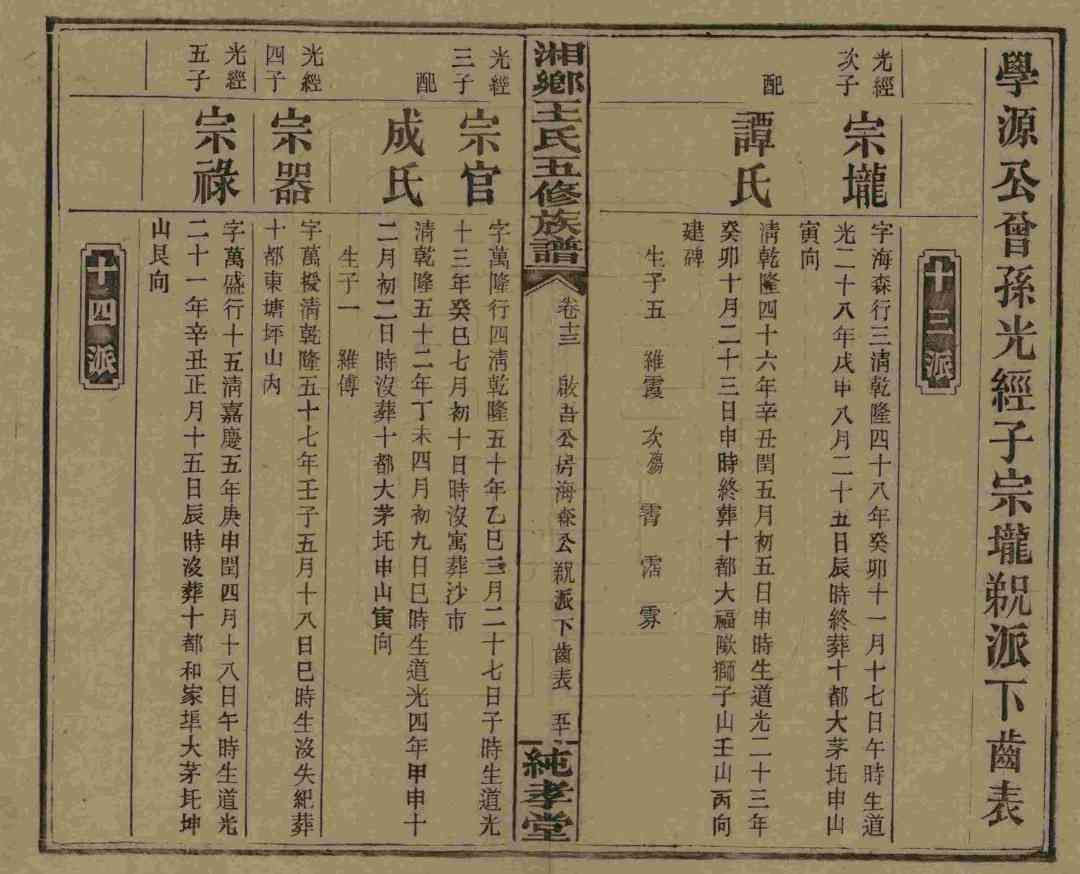 學源公曾孫光經子宗壠派下齒表
十三派
光經
次子
宗壠
字海森行三清乾隆四十八年癸卯十一月十七日午時生道
光二十八年戊申八月二十五日辰時終葬十都大茅坵申山
寅向
配
譚氏
清乾隆四十六年辛丑閏五月初五日申時生道光二十三年
癸卯十月二十三日申時終葬十都大福歐獅子山壬山丙向
建碑
生子五 維霞 次 霱 霑 雰
湘鄉王氏五修族譜
卷十三 啟吾公房海森公派下齒表 五十
純孝堂
光經
三子
宗官
字萬隆行四清乾隆五十年乙巳三月二十七日子時生道光
十三年癸巳七月初十日時沒寓葬沙市
配
成氏
清乾隆五十二年丁未四月初九日巳時生道光四年甲申十
二月初二日時沒葬十都大茅坵申山寅向
生子一 維傳
光經
四子
宗器
字萬授清乾隆五十七年壬子五月十八日巳時生沒失紀葬
十都東塘坪山內
光經
五子
宗祿
字萬盛行十五清嘉慶五年庚申閏四月十八日午時生道光
二十一年辛丑正月十五日辰時沒葬十都和家埠大茅坵坤
山艮向
十四派